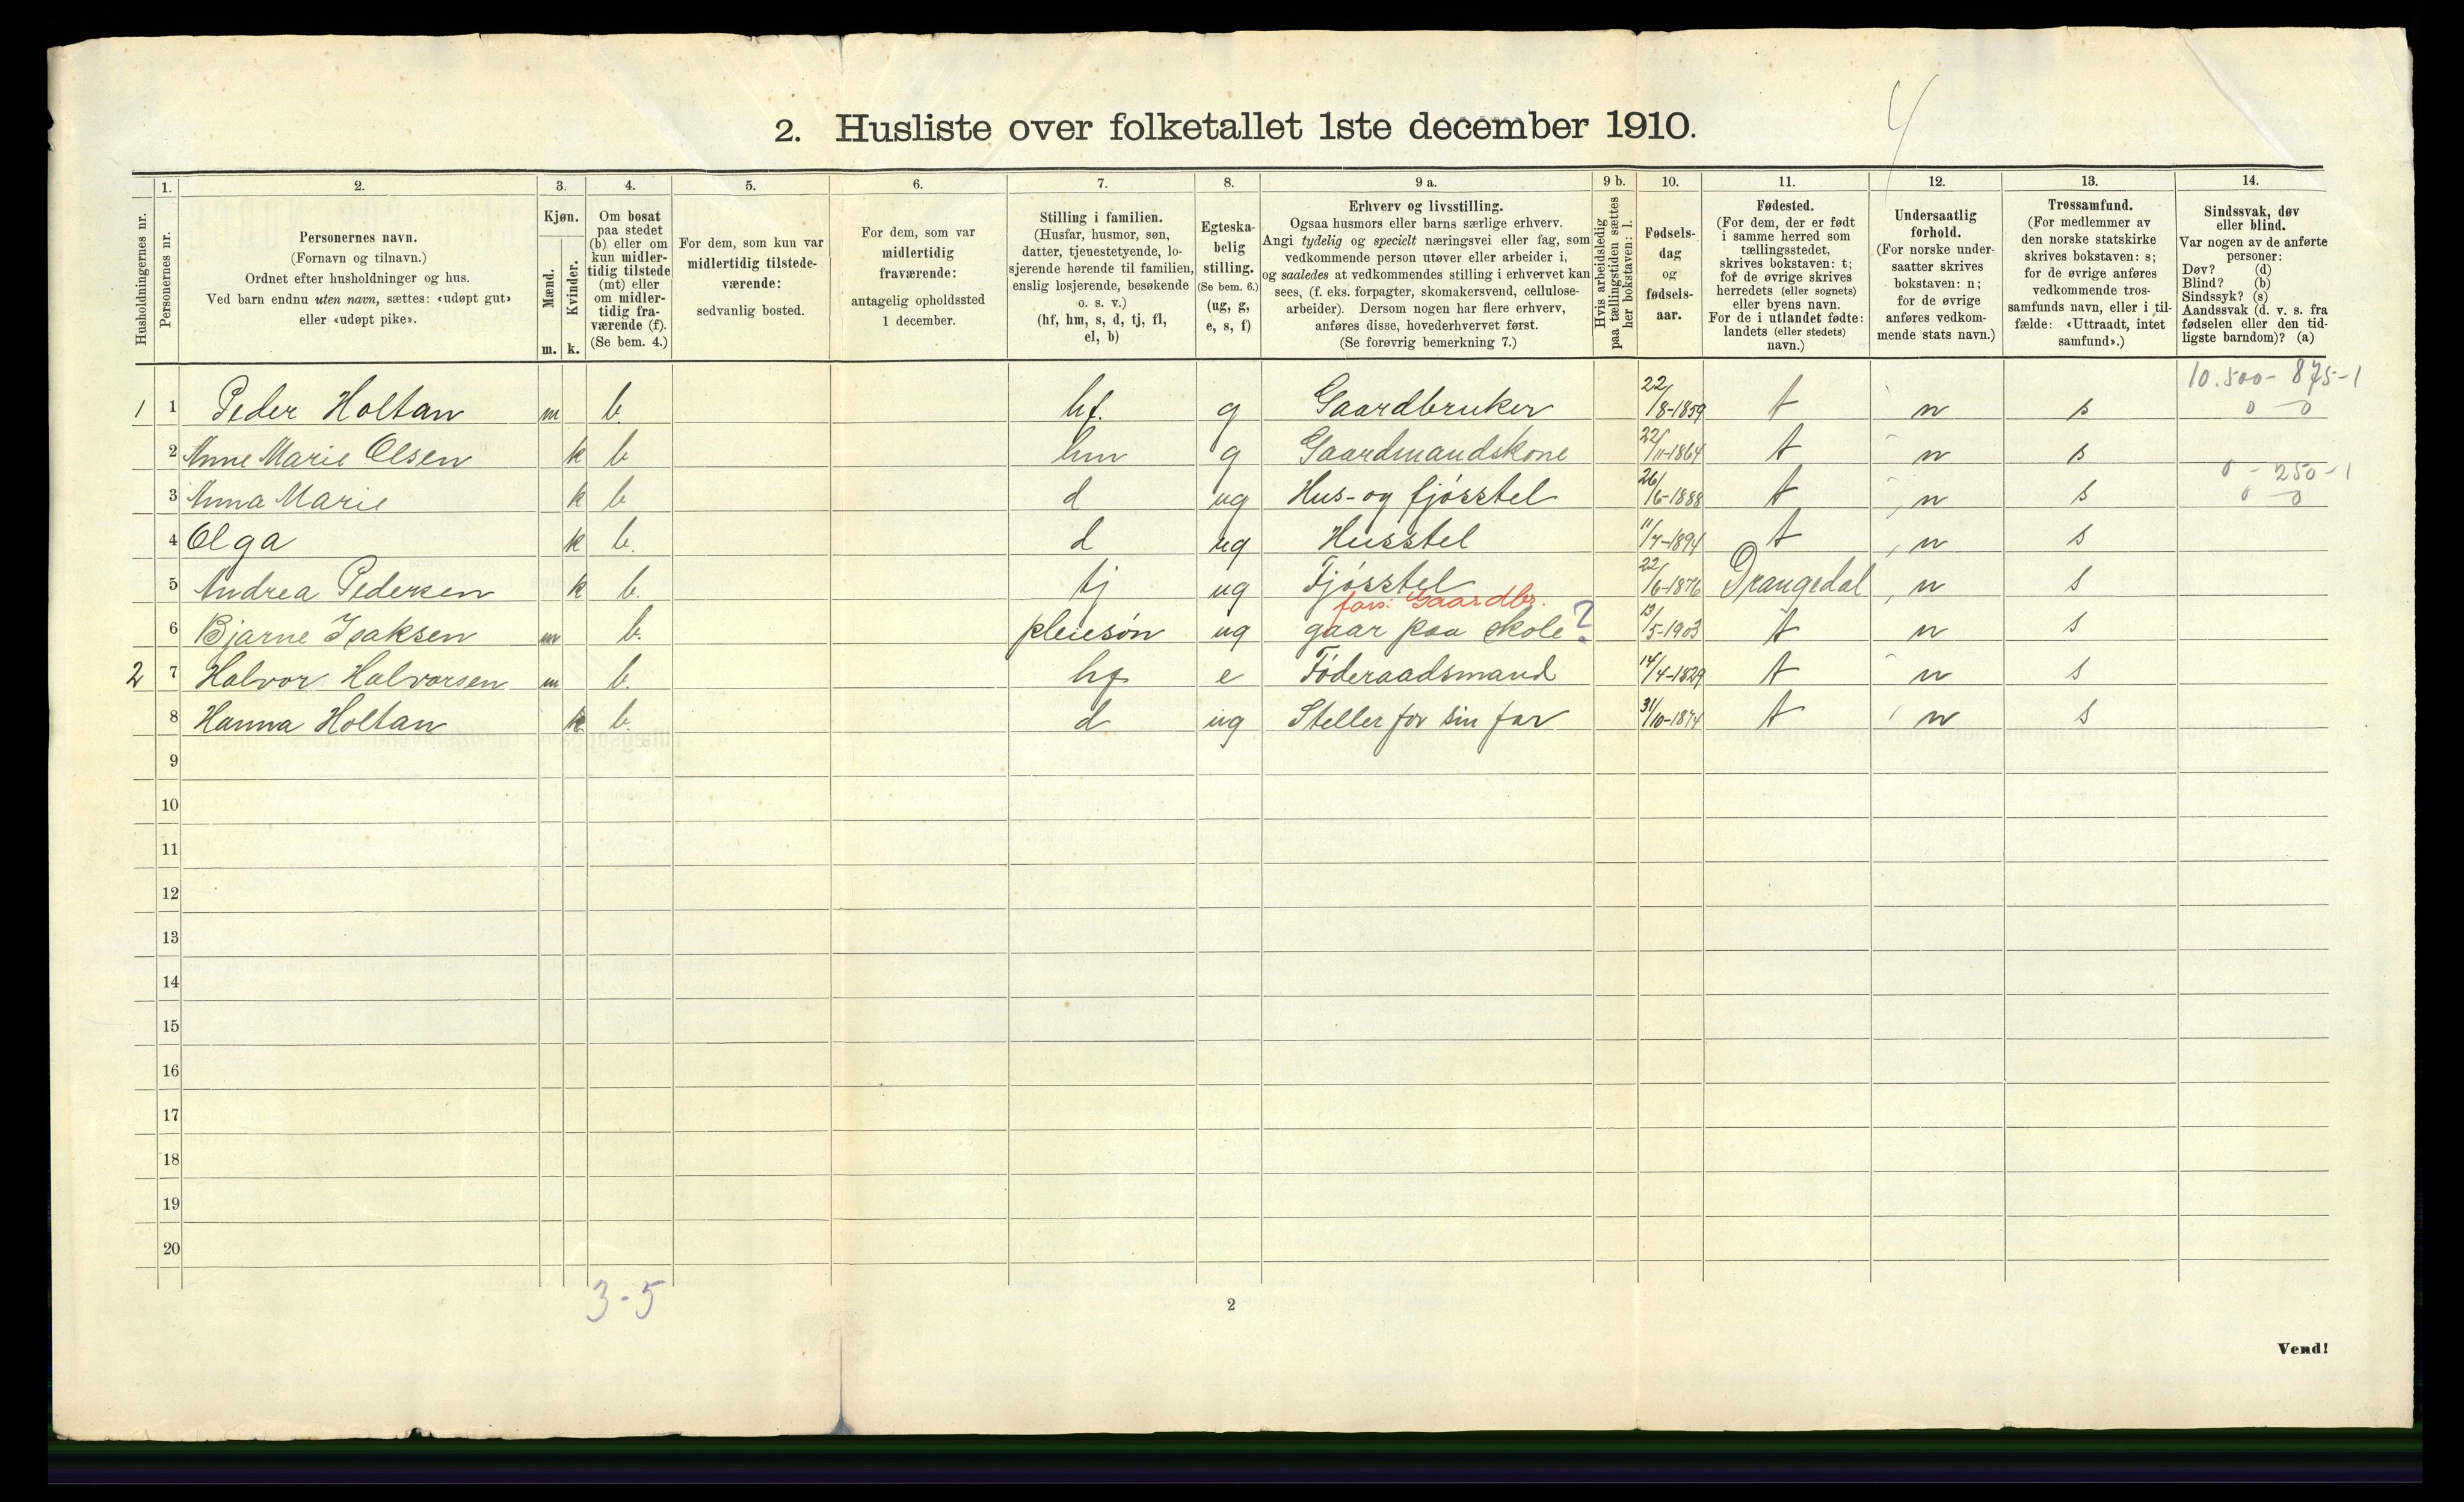 4
2. Husliste over folketallet 1ste december 1910.
Husholdningernes nr.
1.
Personernes nr.
2.
Personernes navn.
(Fornavn og tilnavn.)
Ordnet efter husholdninger og hus.
Ved barn endnu uten navn, sættes: «udøpt gut»
eller «udøpt pike».
3.
Kjøn.
Mænd.
Kvinder.
m. k.
4.
Om bosat
paa stedet
(b) eller om
kun midler-
tidig tilstede
(mt) eller
om midler-
tidig fra-
værende (f).
(Se bem. 4.)
5.
For dem, som kun var
midlertidig tilstede-
værende:
sedvanlig bosted.
6.
For dem, som var
midlertidig
fraværende:
antagelig opholdssted
1 december.
7.
Stilling i familien.
(Husfar, husmor, søn,
datter, tjenestetyende, lo-
sjerende hørende til familien,
enslig losjerende, besøkende
o. s. v.)
(hf, hm, s, d, tj, fl,
el, b)
8.
Egteska-
belig
stilling.
(Se bem. 6.)
(ug, g,
e, s, f)
9 a.
Erhverv og livsstilling.
Ogsaa husmors eller barns særlige erhverv.
Angi tydelig og specielt næringsvei eller fag, som
vedkommende person utøver eller arbeider i,
og saaledes at vedkommendes stilling i erhvervet kan
sees, (f. eks. forpagter, skomakersvend, cellulose-
arbeider). Dersom nogen har flere erhverv,
anføres disse, hovederhvervet først.
(Se forøvrig bemerkning 7.)
9 b.
Hvis arbeidsledig
paa tællingstiden sættes
her bokstaven: l.
10.
Fødsels-
dag
og
fødsels-
aar.
11.
Fødested.
(For dem, der er født
i samme herred som
tællingsstedet,
skrives bokstaven: t;
for de øvrige skrives
herredets (eller sognets)
eller byens navn.
For de i utlandet fødte:
landets (eller stedets)
navn.)
12.
Undersaatlig
forhold.
(For norske under-
saatter skrives
bokstaven: n;
for de øvrige
anføres vedkom-
mende stats navn.)
13.
Trossamfund.
(For medlemmer av
den norske statskirke
skrives bokstaven: s;
for de øvrige anføres
vedkommende tros-
samfunds navn, eller i til-
fælde: «Uttraadt, intet
samfund».)
14.
Sindssvak, døv
eller blind.
Var nogen av de anførte
personer:
Døv? (d)
Blind? (b)
Sindssyk? (s)
Aandssvak (d. v. s. fra
fødselen eller den tid-
ligste barndom)? (a)
10.500 - 875 - 1
1 1 Peder Holtan m b. hf. g Gaardbruker 22/8-1859 t n s 0 - 0
2 Anne Marie Olsen k b hm g Gaardmandskone 22/11-1864 t n s
0 - 250 - 1
3 Anna Marie k b d ug Hus- og fjósstel 26/6-1888 t n s 0 - 0
4 Olga k b. d ug Husstel 11/7-1894 t n s
5 Andrea Pedersen k b. tj ug Fjósstel 22/6-1876 Drangedal n s
fors: Gaardbr.
6 Bjarne Isaksen m b. pleiesón ug gaar paa skole ? 13/5-1903 t n s
2 7 Halvor Halvorsen m b. hf e Fóderaadsmand 14/4-1829 t n s
8 Hanna Holtan k b. d ug Steller for sin far 31/10-1874 t n s
9
10
11
12
13
14
15
16
17
18
19
20
3-5
2
Vend!